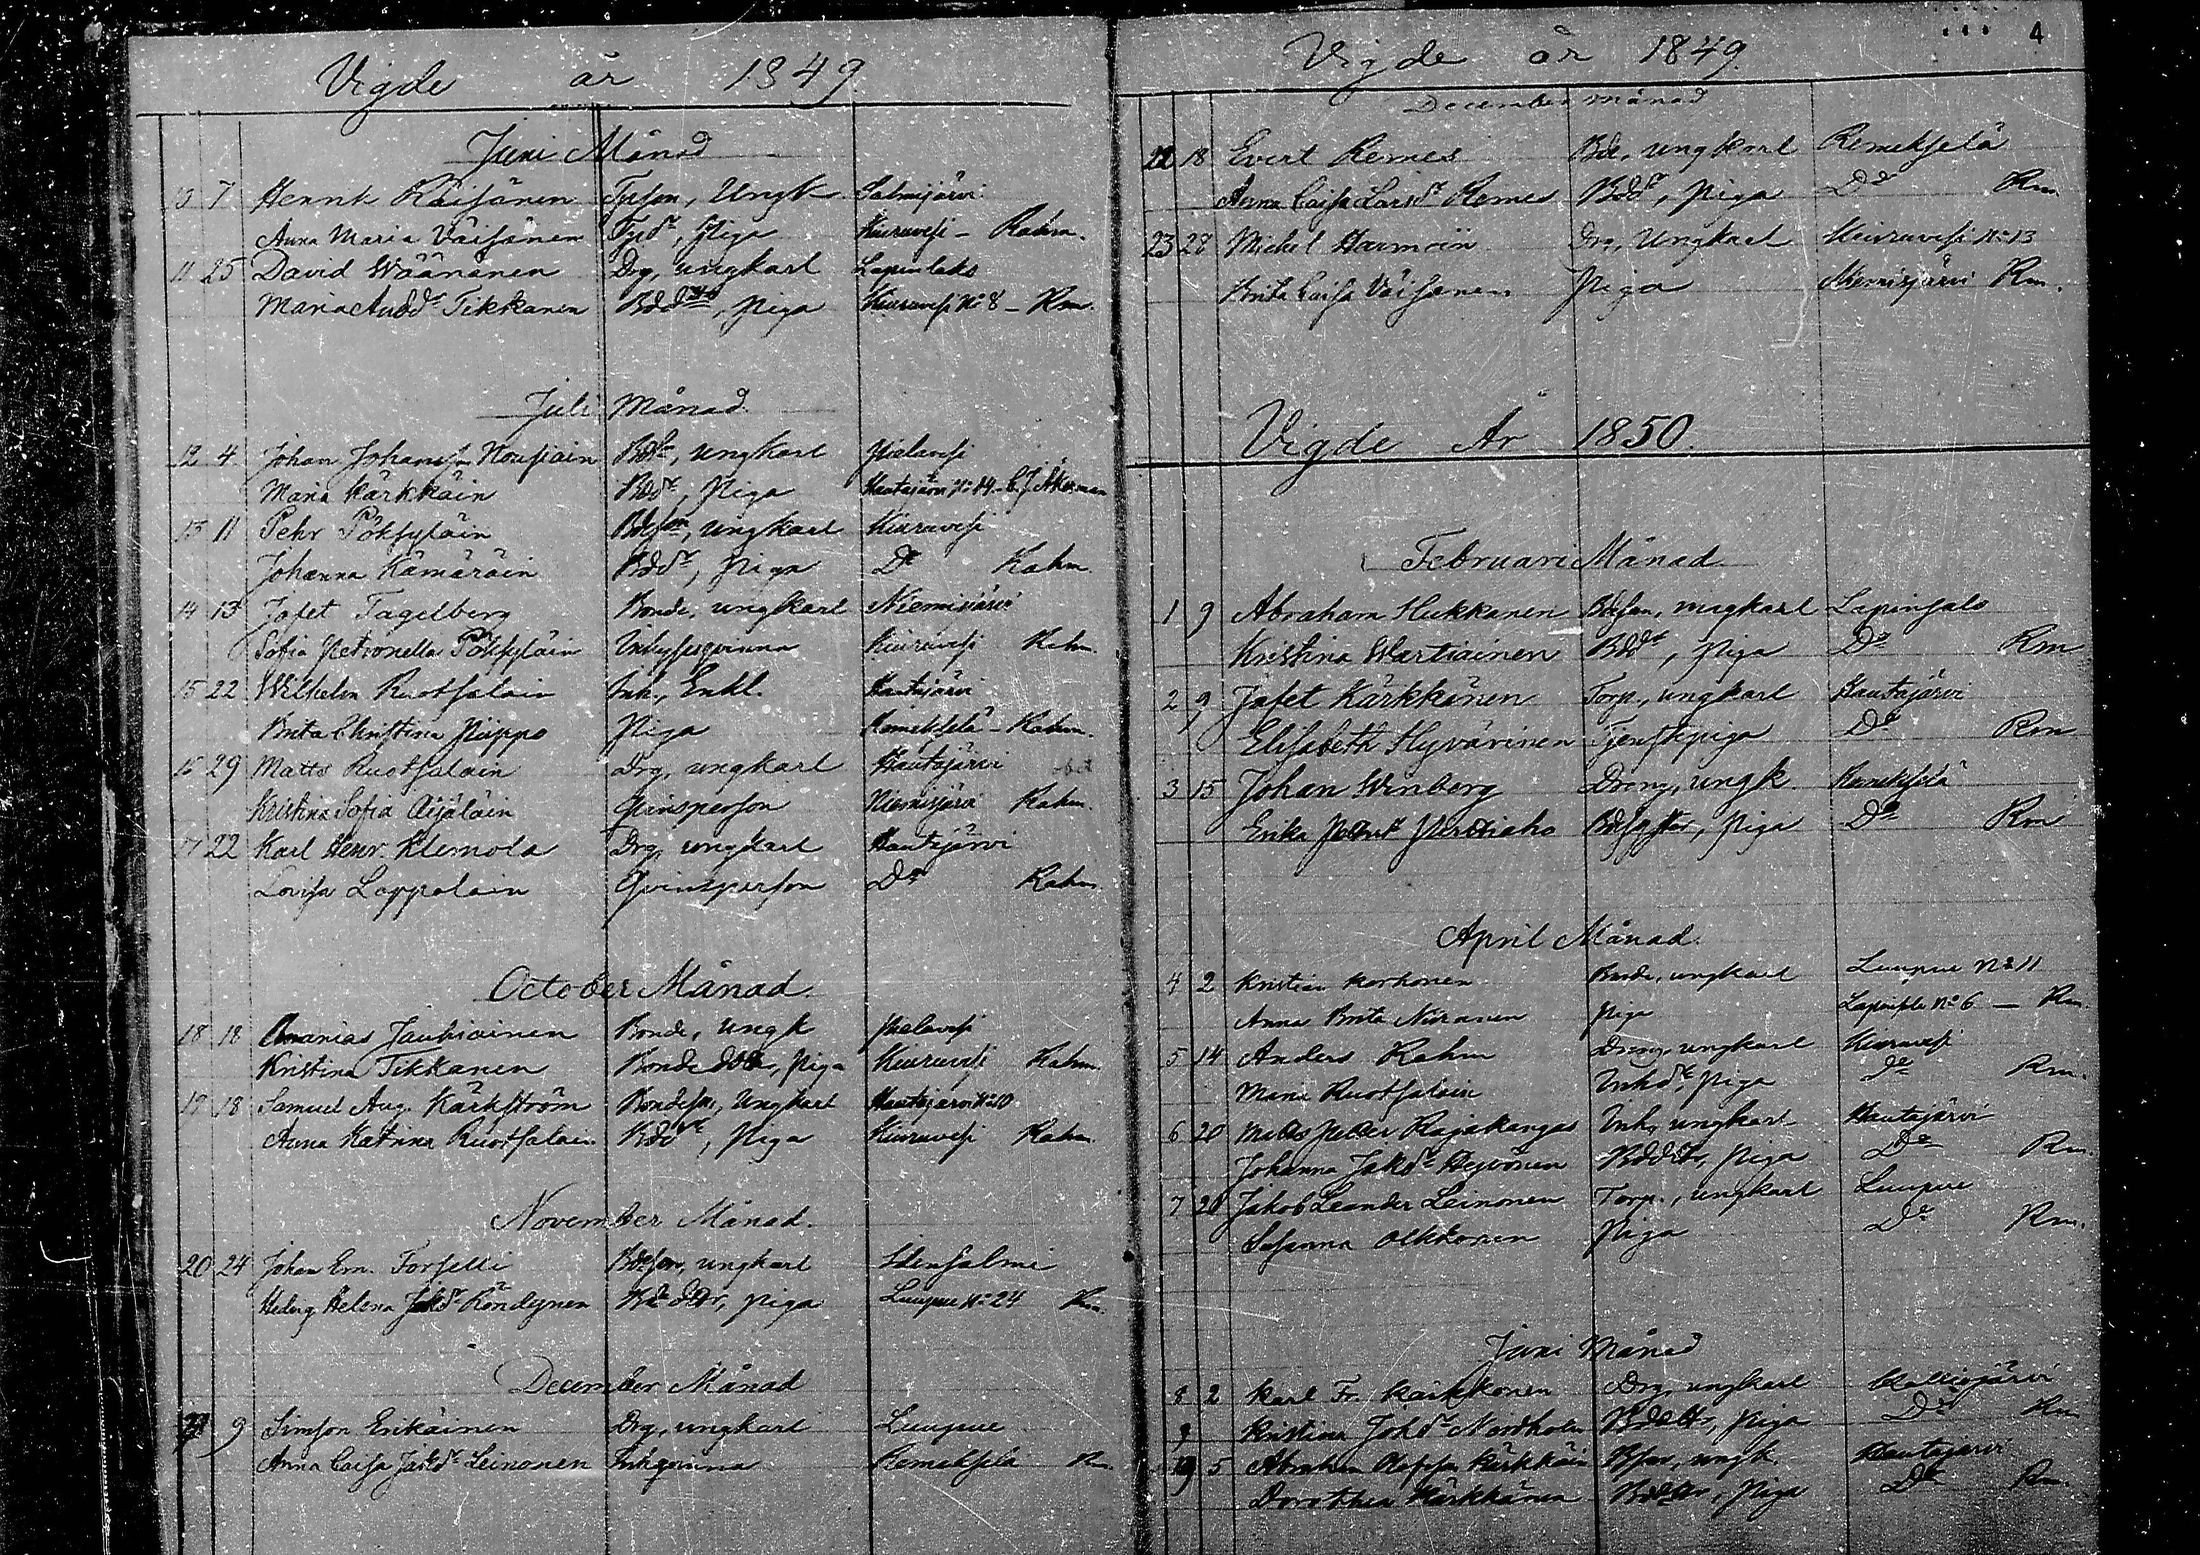 Vigde år 1849.
Juni Månad
10 7 Henrik Räisänen Tpson, Ungk. Salmijärvi
Anna Maria Väisänen Tpdr, Piga Kiuruvesi - Rahm.
11 25 David Wäänänen Drg, ungkarl Lapinlaks
Maria Andd. Tikkanen Bddtr, piga Kiuruvesi No 8 - Rm.
Juli Månad
12 4 Johan Johansson Nousiain ungkarl Pielavesi
Maria Kärkkäin Bddr, Piga Hautajärvi No 14 - C. J. Åkerman
13 11 Pehr Pöksyläin Bdeson, ungkarl Kiuruvesi
Johanna Kämäräin Bddr, Piga Do Rahm.
14 13 Jafet Tagelberg Bonde, ungkarl Niemisjärvi
Sofia Petronella Pöksyläin Inhysesqvinna Kiuruvesi Rahm.
15 22 Wilhelm Ruotsalain Inh, Enkl. Hautajärvi
Brita Christina Piippo Piga Remekselä - Rahm.
15 29 Matts Ruotsalain Drg, ungkarl Hautajärvi
Kristina Sofia Äijäläin Qvinsperson Niemisjärvi Rahm.
17 22 Karl Henr. Klemola Drg, ungkarl Hautajärvi
Lovisa Lappalain Qvinsperson Do Rahm.
October Månad.
18 18 Ananias Jauhiainen Bonde, Ungk Pielavesi
Kristina Tikkanen Bonde dotr, Piga Kiuruvesi Rahm.
19 18 Samuel Aug. Kärkström Bondeson, Ungkarl Hautajärvi No 10
Anna Katrina Ruotsalain Bddr, Piga Kiuruvesi Rahm.
November Månad.
20 24 Johan Em. Forsell Bdeson, ungkarl Idensalmi
Hedvig Helena Jakdr Röndynen Bde ddtr, piga Luupue No 24 Rm.
December Månad
21 9 Simson Erikäinen Drg, ungkarl Luupue
Anna Caisa Jakdr Leinonen Inhqvinna Remekselä Rm.
Vigde år 1849.
4
December månad
22 18 Evert Remes Bde, ungkarl Remekselä
Anna Caisa Larsdr Remes Bddr, piga Do Rm.
23 28 Michel Harmoin Drg, Ungkarl Kiuruvesi No 13
Brita Caisa Väisänen Piga Niemisjärvi Rm.
Vigde År 1850.
Februari Månad
1 9 Abraham Hukkanen Bdeson, ungkarl Lapinsalo
Kristina Wartiainen Bddr, Piga Do Rm
2 9 Jafet Kärkkänen Torp, ungkarl Hautajärvi
Elisabeth Hyvärinen Tjenstepiga Do Rm
3 15 Johan Winberg Dreng, ungk. Remekselä
Erika Partiaho piga Do Rm
April Månad.
4 2 Kristian Korhonen Bonde, ungkarl Luupue No 11
Anna Brita Niiranen Piga Lapinsalo No 6 - Rm.
5 14 Anders Rahm Dreng, ungkarl Kiuruvesi
Maria Ruotsalain Inhdr, Piga Do Rm.
6 20 Matts Petter Rajakangas Inh, ungkarl Hautajärvi
Johanna Jakdr Heyvönen Bddtr, Piga Do Rm.
7 20 Jakob Leander Leinonen Torp., ungkarl Luupue
Susanna Olkkonen Piga Do Rm.
Juni Månad
8 2 Karl Fr. Kärkkönen Drg, ungkarl Kalliojärvi
9 Kristina Johdr Nordholm Bddtr, Piga Do Rm
5 Abraham Olofsson Kärkkäin ungk. Hautajärvi
Dorothea Kärkkänen Bddtr, Piga Do Rm.